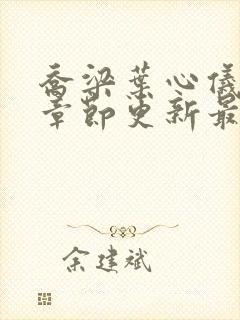 乔梁叶心仪
章节更新最
余建斌